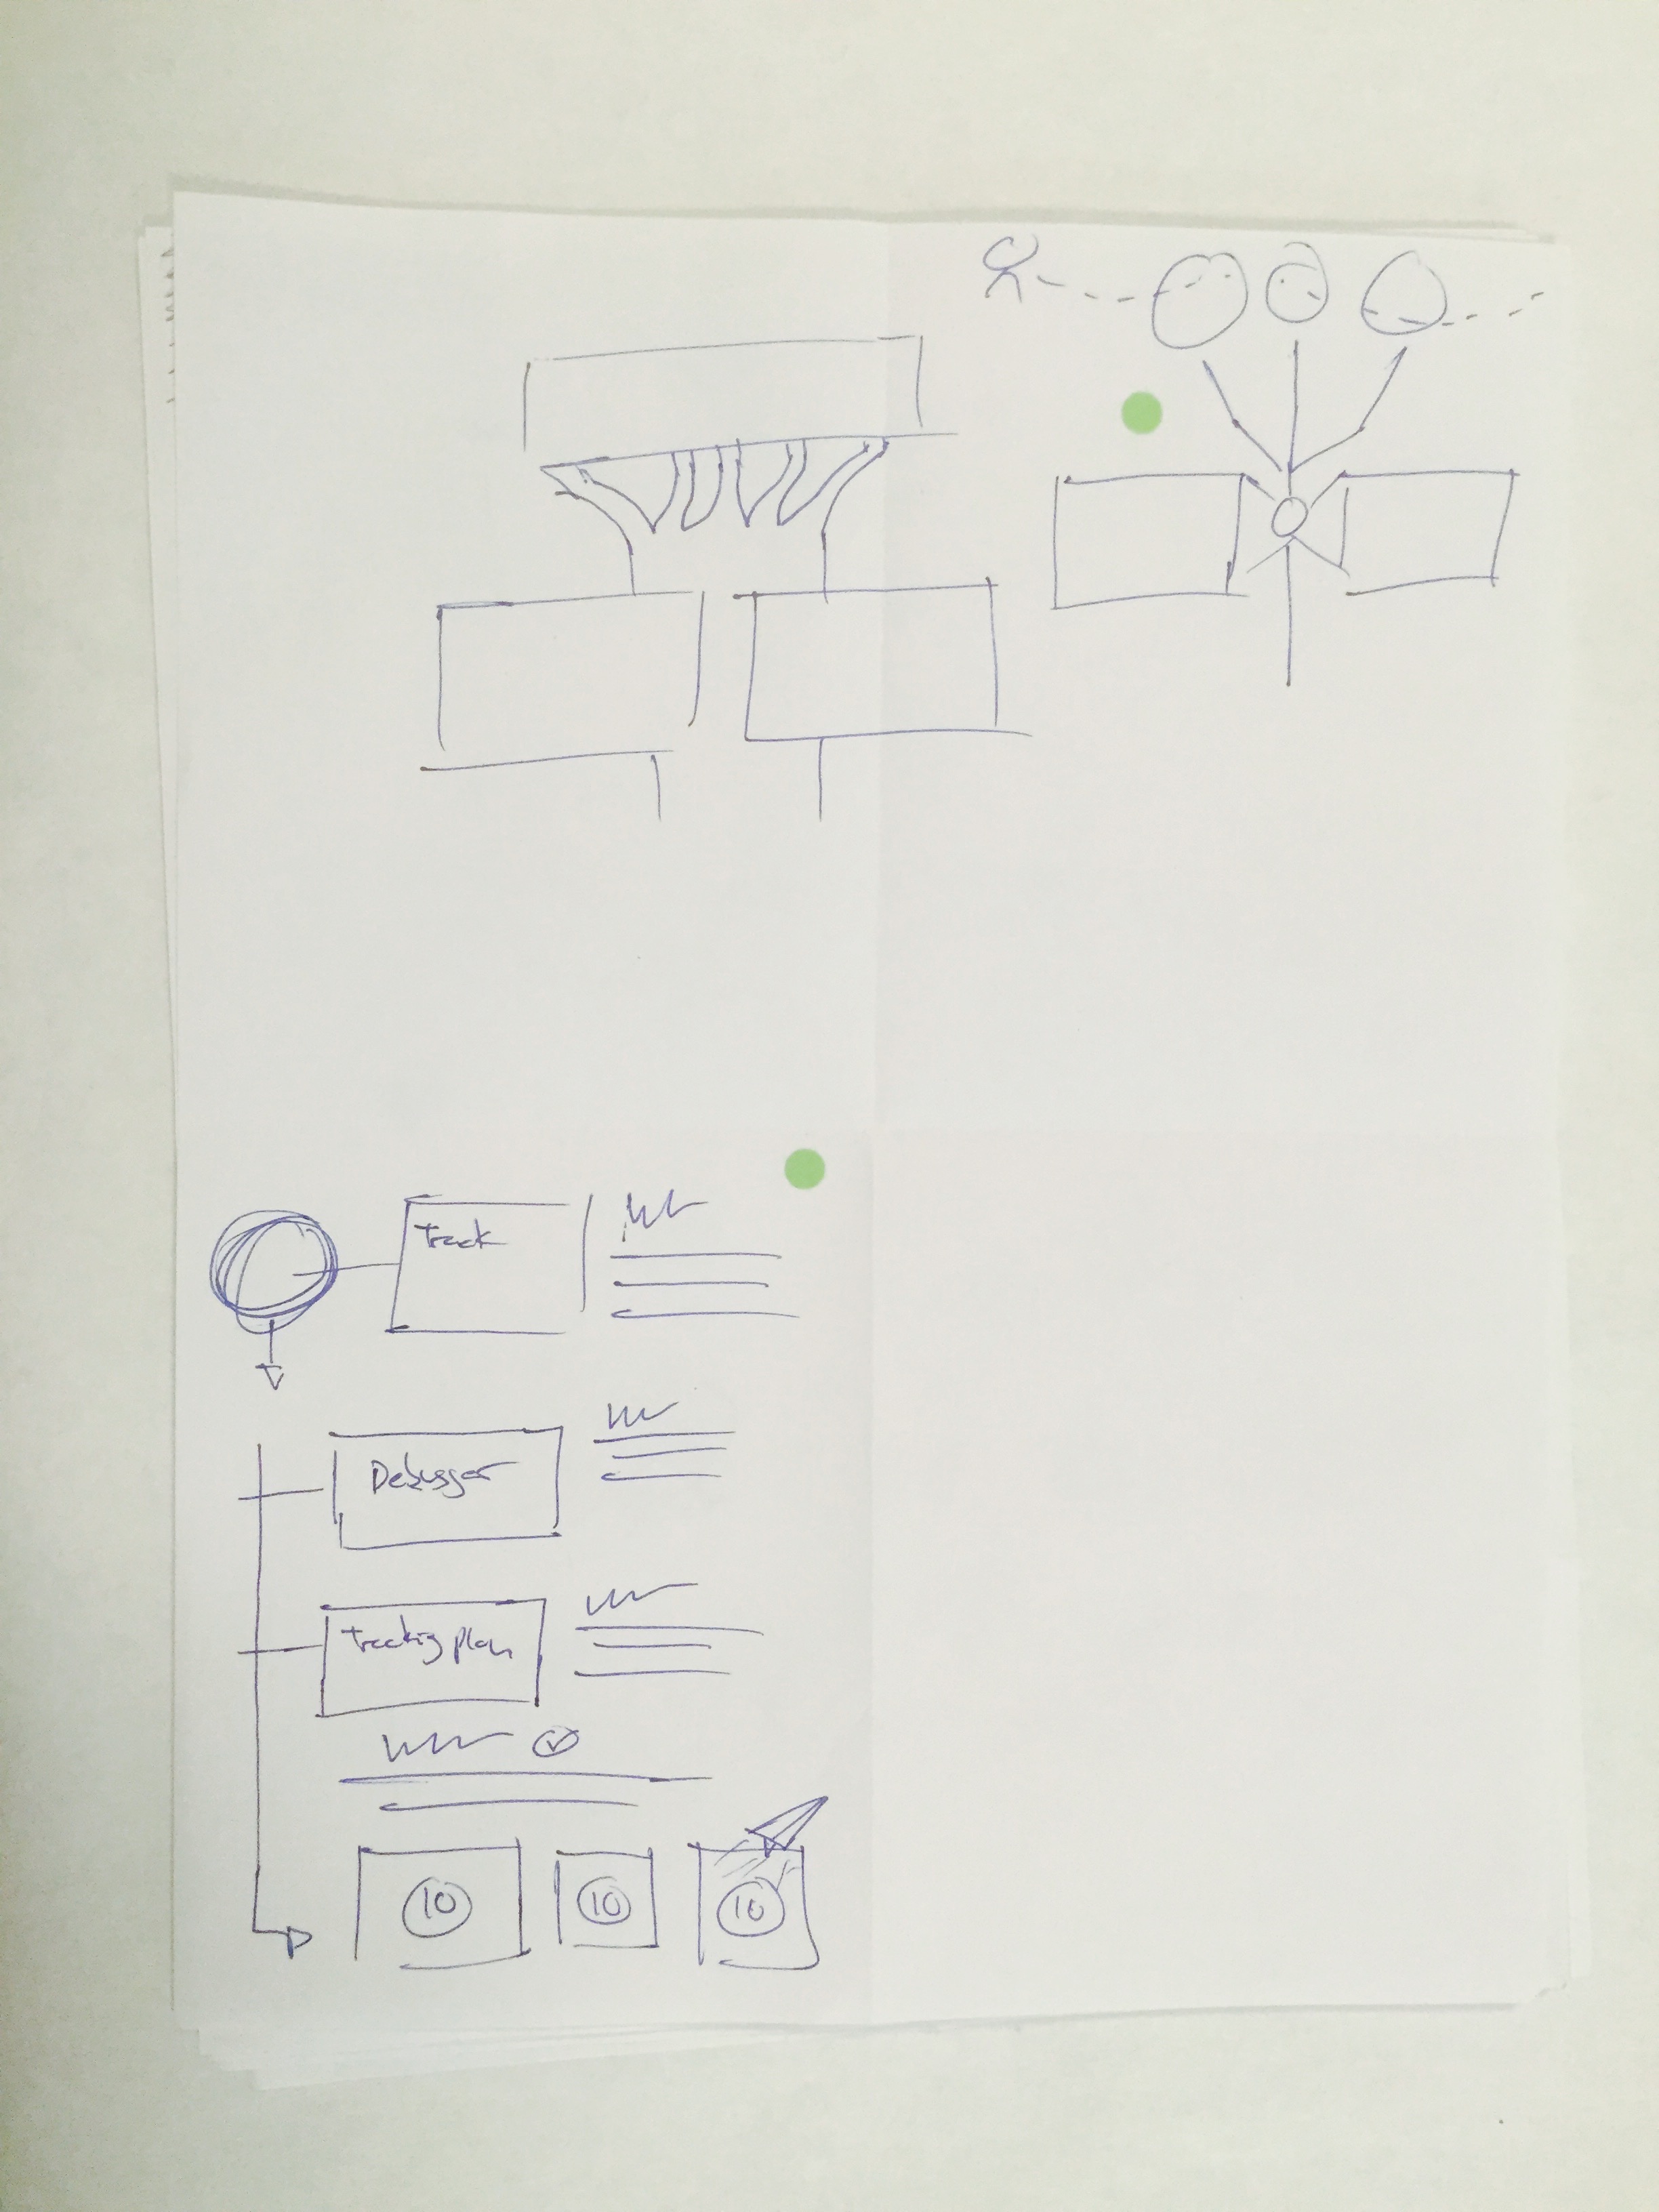 Track
Debugger
Tracking plan
10 10 10